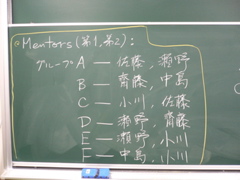 Mentors (第1, 第2):
グループA — 佐藤, 瀬野
B — 齊藤, 中島
C — 小川, 佐藤
D — 瀬野, 齊藤
E — 瀬野, 小川
F — 中島, 小川